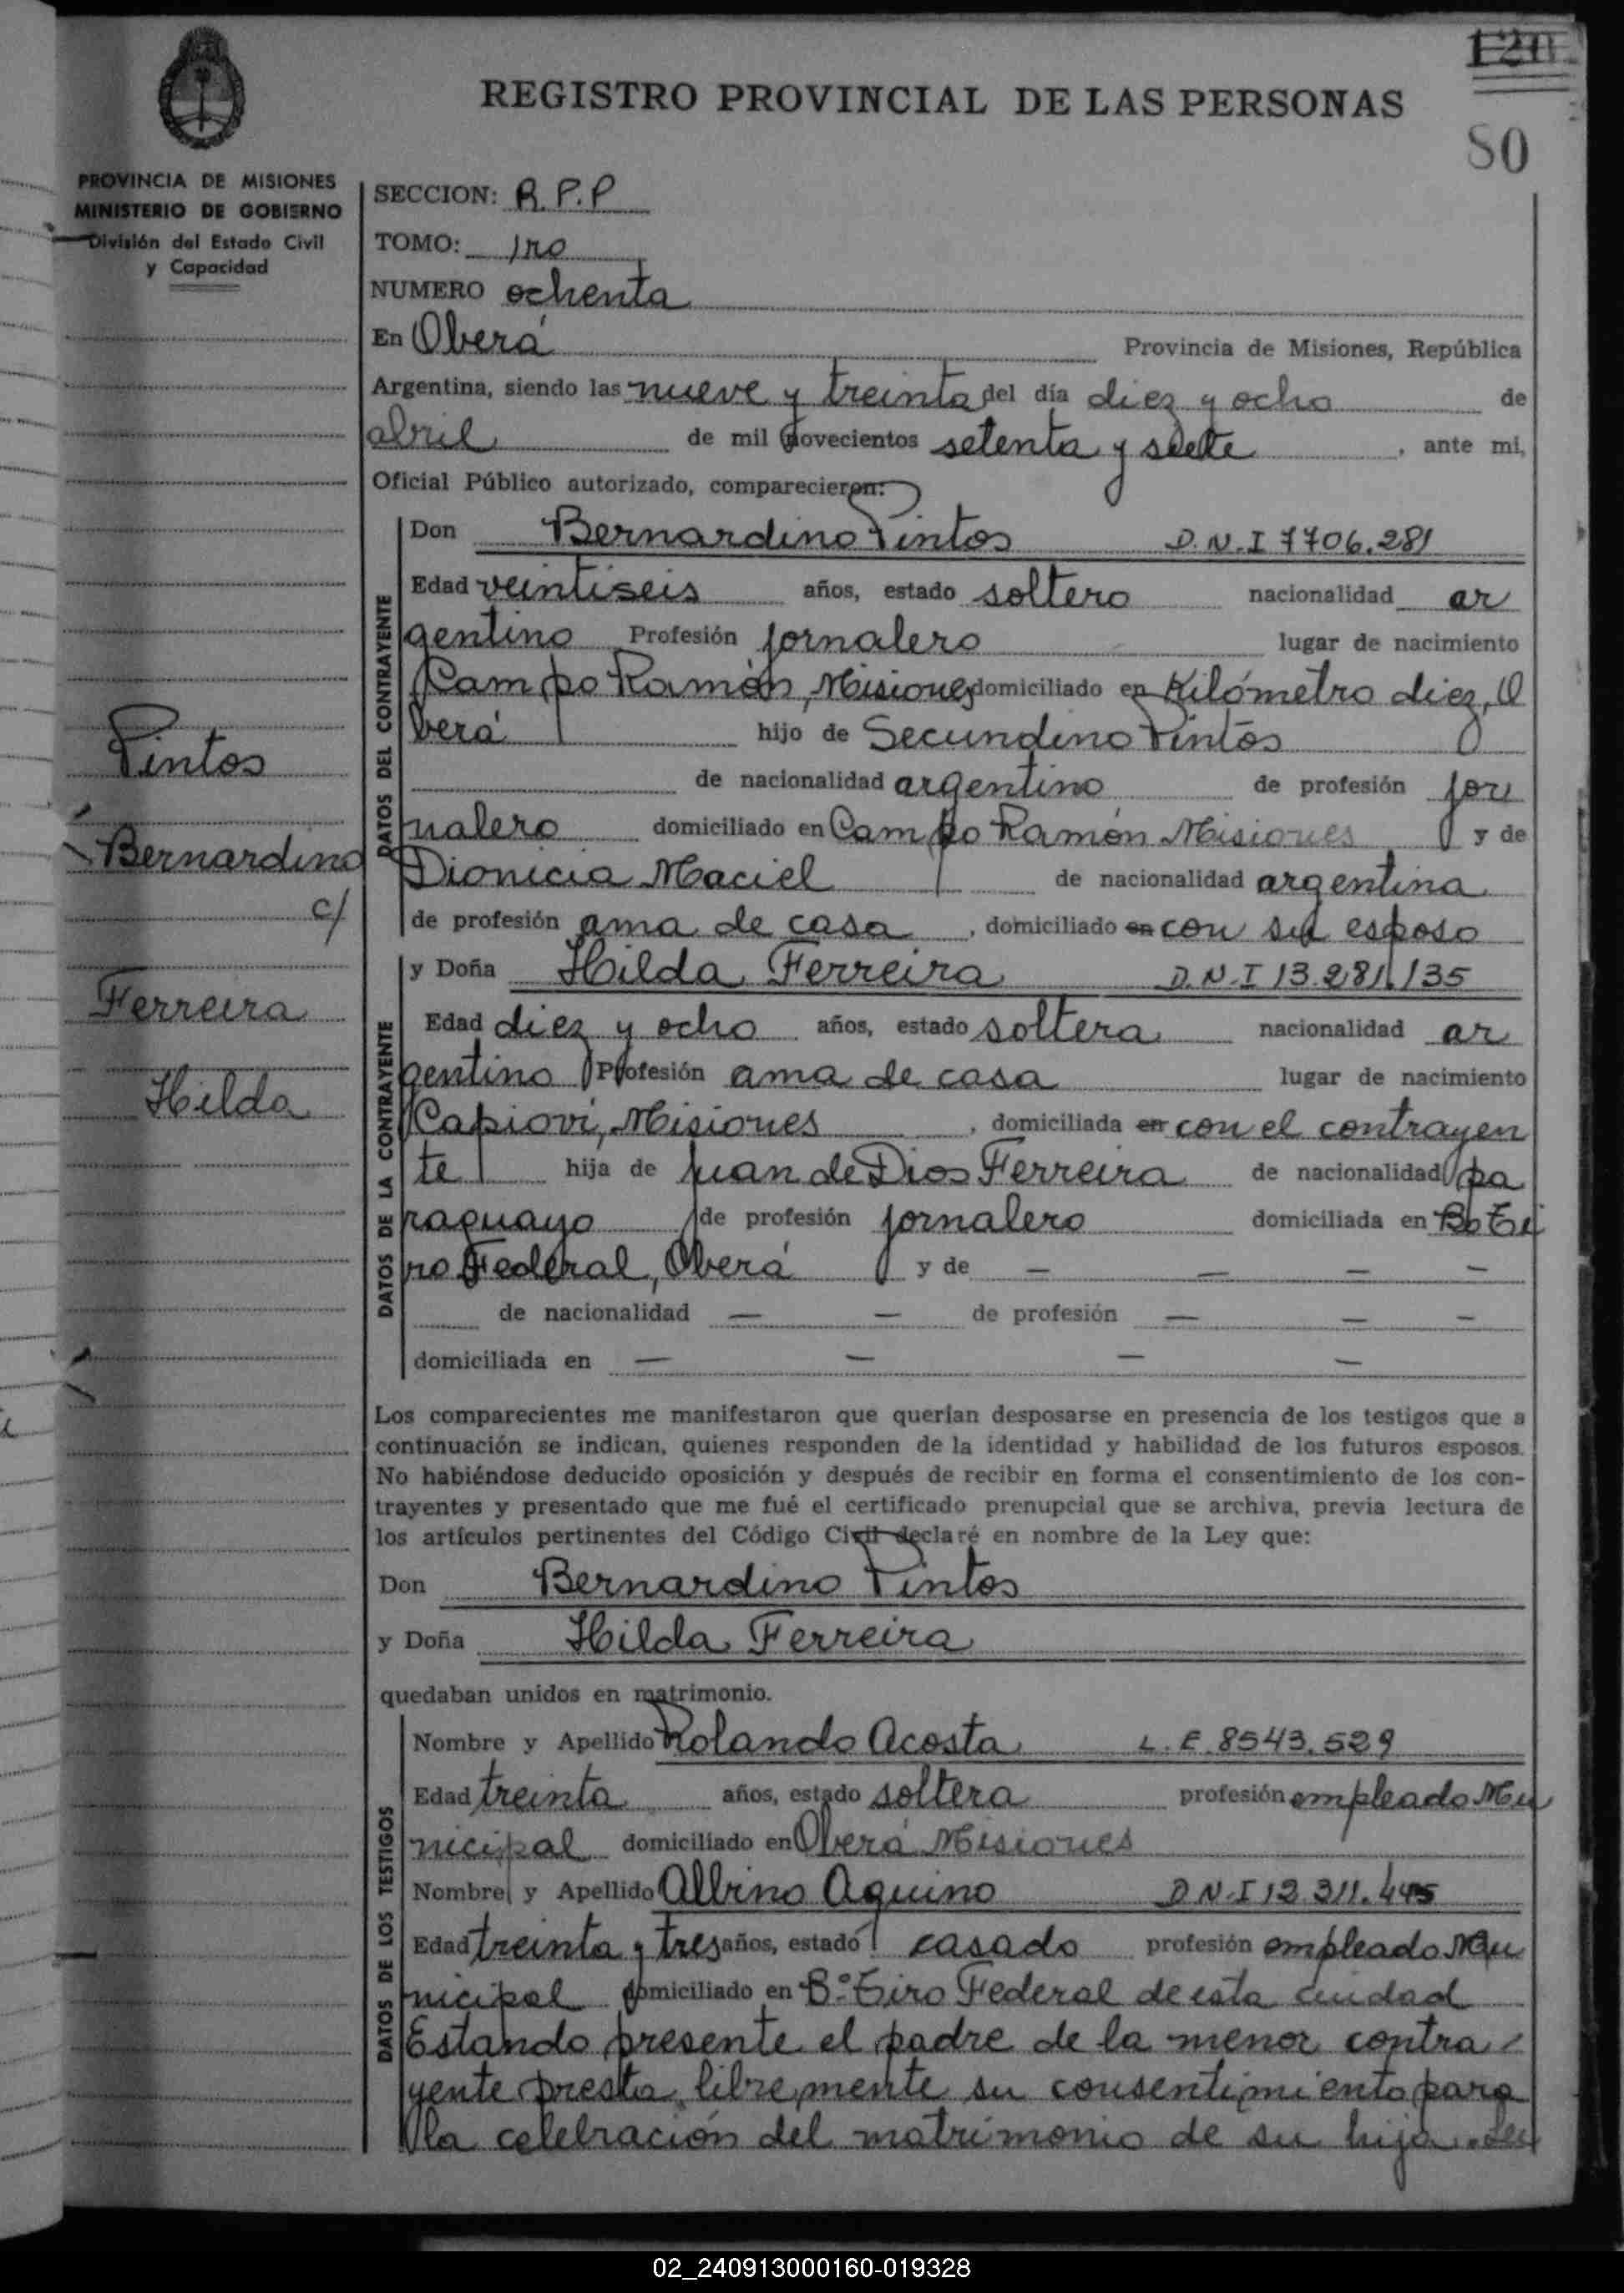 120
REGISTRO PROVINCIAL DE LAS PERSONAS
80
PROVINCIA DE MISIONES
MINISTERIO DE GOBIERNO
División del Estado Civil
y Capacidad
SECCION: R.P.P
TOMO: 1ro
NUMERO ochenta
En Oberá Provincia de Misiones, República
Argentina, siendo las nueve y treinta del día diez y ocho de
abril de mil novecientos setenta y siete, ante mi,
Oficial Público autorizado, comparecieron:
DATOS DEL CONTRAYENTE
Don Bernardino Pintos D.N.I 7706.281
Edad veintiseis años, estado soltero nacionalidad ar
gentino Profesión jornalero lugar de nacimiento
Campo Ramón, Misiones domiciliado en Kilómetro diez, O
berá hijo de Secundino Pintos
de nacionalidad argentino de profesión jor
nalero domiciliado en Campo Ramón Misiones y de
Dionicia Maciel de nacionalidad argentina
de profesión ama de casa, domiciliado en con su esposo
Pintos
Bernardino
c/
Ferreira
Hilda
DATOS DE LA CONTRAYENTE
y Doña Hilda Ferreira D.N.I 13.281.135
Edad diez y ocho años, estado soltera nacionalidad ar
gentino Profesión ama de casa lugar de nacimiento
Capioví, Misiones, domiciliada en con el contrayen
te hija de Juan de Dios Ferreira de nacionalidad pa
raguayo de profesión jornalero domiciliada en Bo Ti
ro Federal, Oberá y de — — — —
de nacionalidad — — de profesión — — —
domiciliada en — — — —
Los comparecientes me manifestaron que querían desposarse en presencia de los testigos que a
continuación se indican, quienes responden de la identidad y habilidad de los futuros esposos.
No habiéndose deducido oposición y después de recibir en forma el consentimiento de los con-
trayentes y presentado que me fué el certificado prenupcial que se archiva, previa lectura de
los artículos pertinentes del Código Civil declaré en nombre de la Ley que:
Don Bernardino Pintos
y Doña Hilda Ferreira
quedaban unidos en matrimonio.
DATOS DE LOS TESTIGOS
Nombre y Apellido Rolando Acosta L.E. 8543.529
Edad treinta años, estado soltera profesión empleado Mu
nicipal domiciliado en Oberá Misiones
Nombre y Apellido Albino Aquino D.N.I 12.311.445
Edad treinta y tres años, estado casado profesión empleado Mu
nicipal domiciliado en B.º Tiro Federal de esta ciudad
Estando presente el padre de la menor contra
yente presta libremente su consentimiento para
la celebración del matrimonio de su hija. Lei
02_240913000160-019328